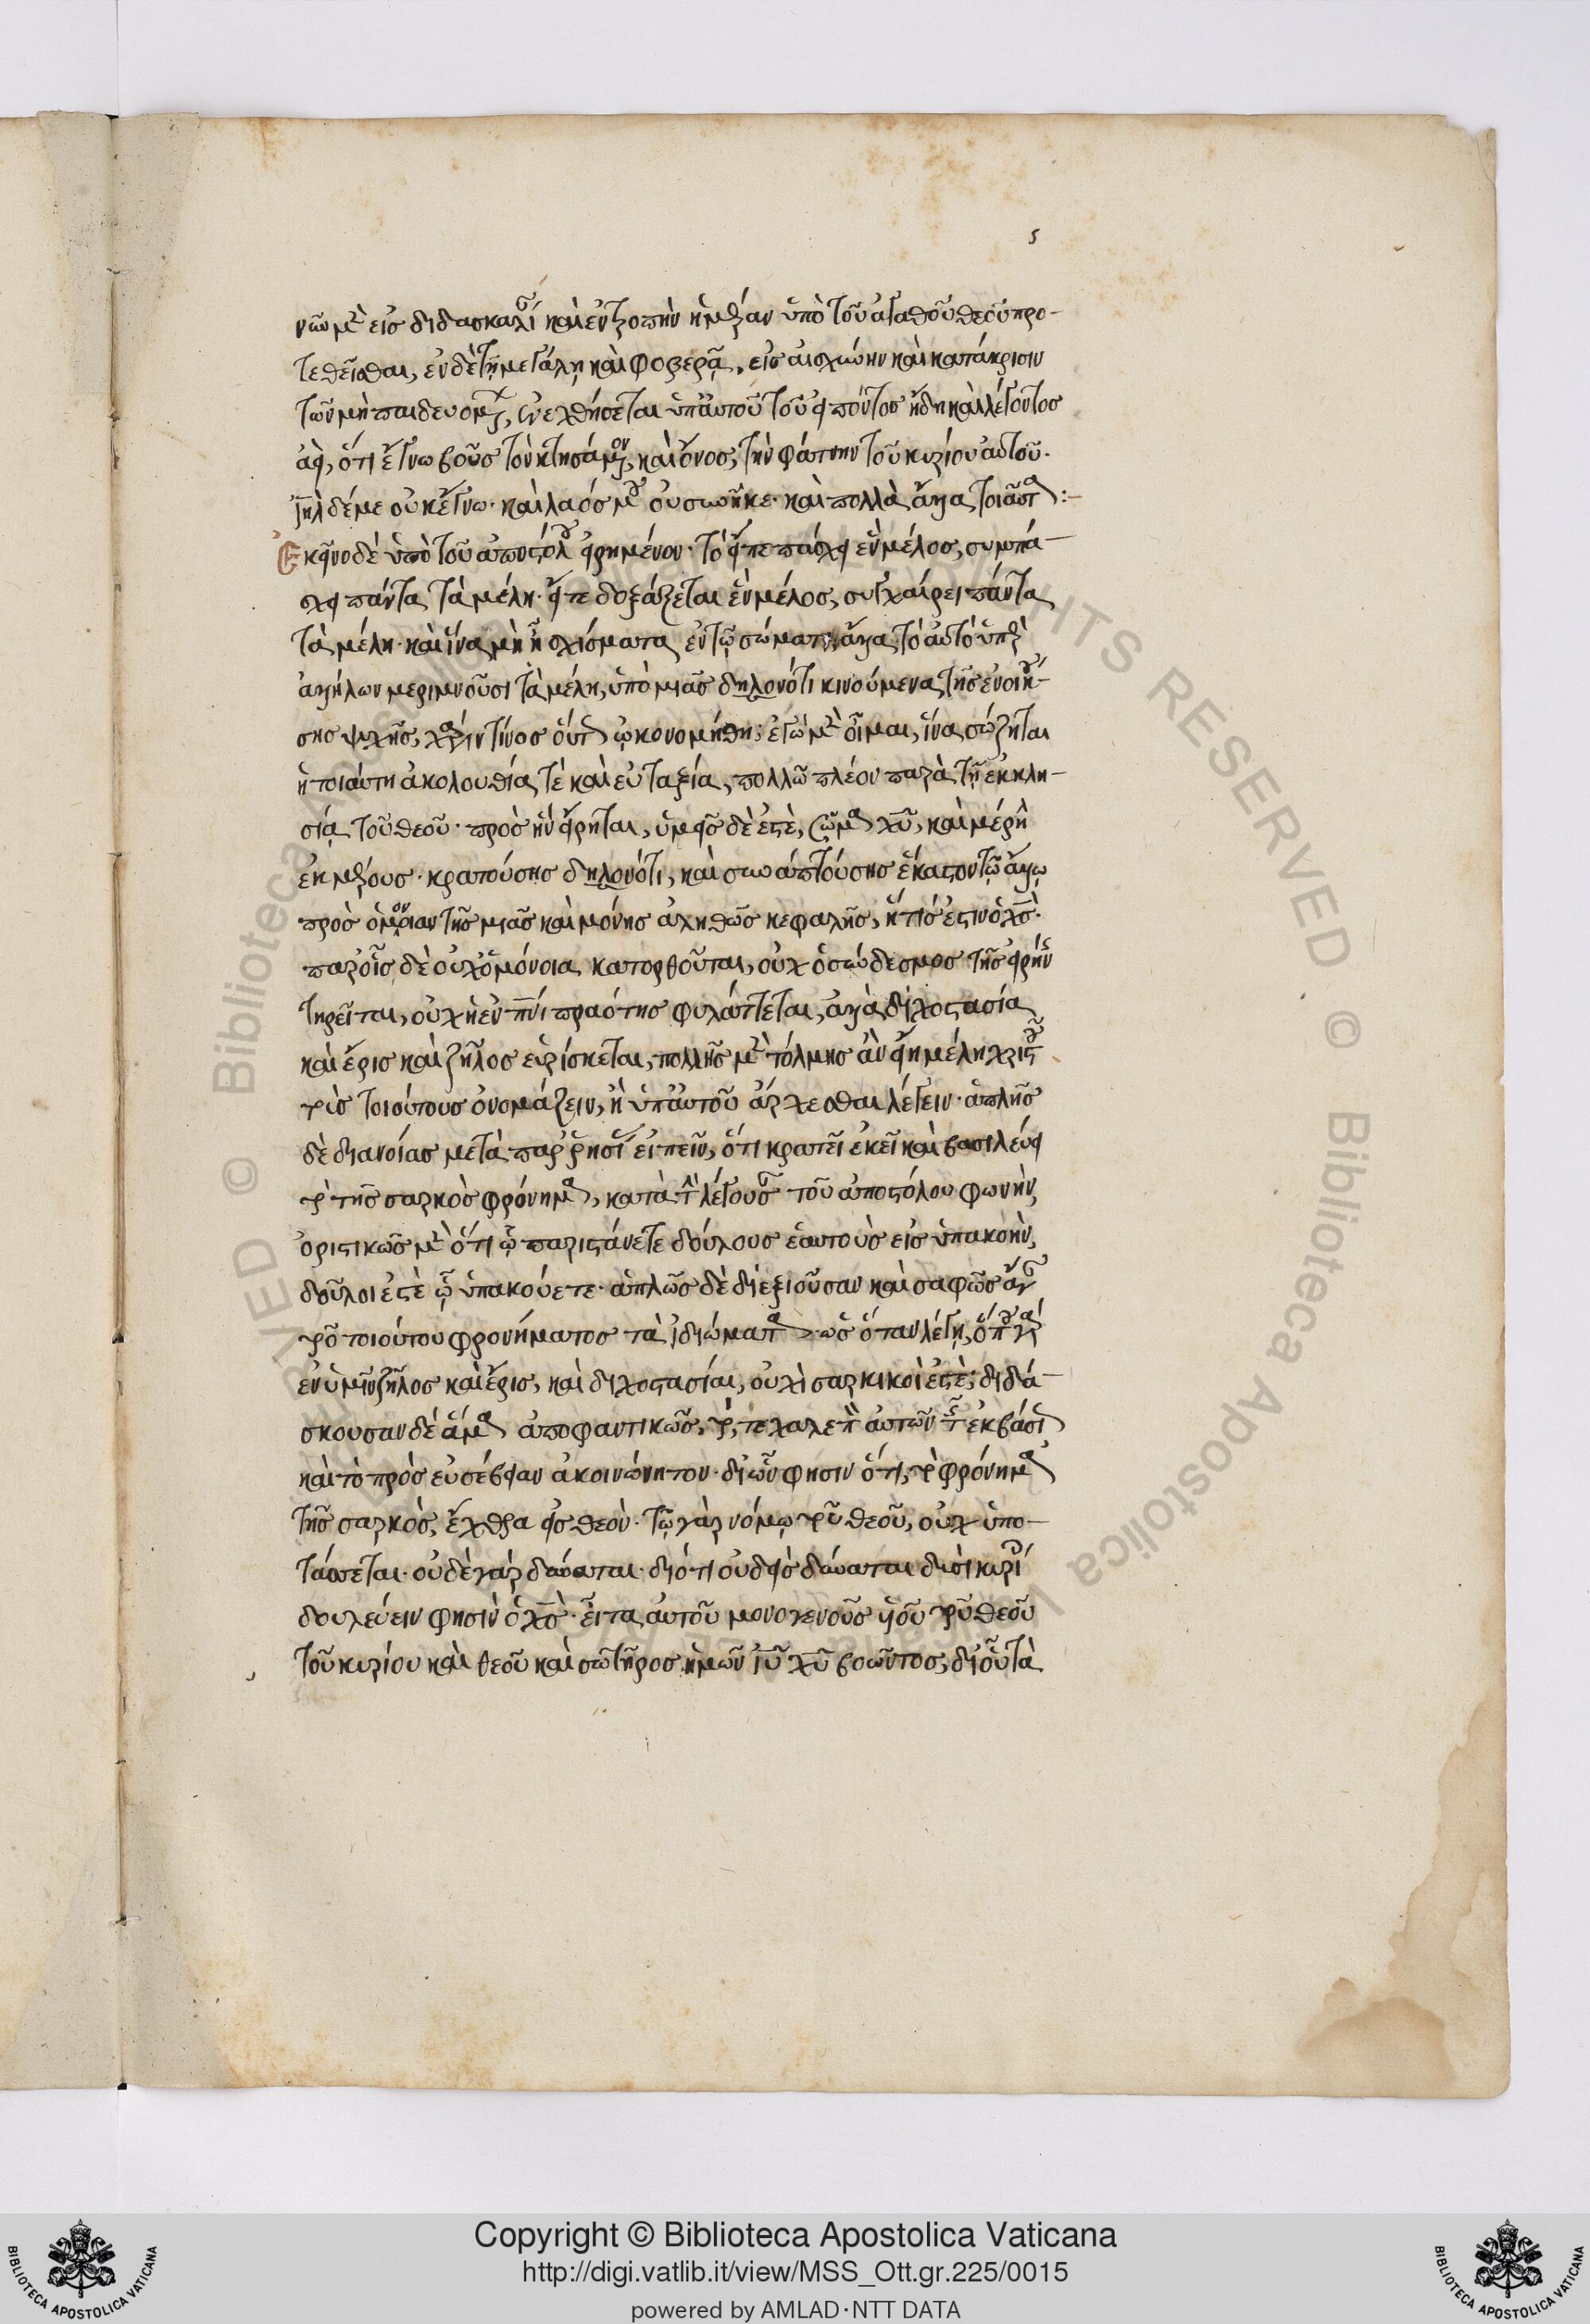 ς
νῶν μὲν εἰς διδασκαλίαν καὶ ἐντροπὴν ἡμετέραν ὑπὸ τοῦ ἀγαθοῦ θεοῦ προ-
τεθεῖσθαι, ἐν δὲ τῇ μεγάλῃ καὶ φοβερᾷ, εἰς αἰσχύνην καὶ κατάκρισιν
τῶν μὴ παιδευομένων, ἐνεχθήσεται ὑπ' αὐτοῦ τοῦ εἰπόντος ἤδη καὶ λέγοντος
ἀεί, ὅτι ἔγνω βοῦς τὸν κτησάμενον, καὶ ὄνος, τὴν φάτνην τοῦ κυρίου αὐτοῦ.
ιηλ δέ με οὐκ ἔγνω· καὶ λαός μου οὐ συνῆκε· καὶ πολλὰ ἄλλα τοιαῦτα :-
Ἐκεῖνο δὲ ὑπὸ τοῦ ἀποστόλου εἰρημένον· τὸ εἴτε πάσχει ἓν μέλος, συμπά-
σχει πάντα τὰ μέλη· εἴτε δοξάζεται ἓν μέλος, συγχαίρει πάντα
τὰ μέλη· καὶ ἵνα μὴ ᾖ σχίσματα ἐν τῷ σώματι, ἀλλὰ τὸ αὐτὸ ὑπὲρ
ἀλλήλων μεριμνοῦσι τὰ μέλη, ὑπὸ μιᾶς δηλονότι κινούμενα τῆς ἐνοικού-
σης ψυχῆς, χάριν τίνος οὕτως ᾠκονομήθη; ἐγὼ μὲν οἶμαι, ἵνα σώζηται
ἡ τοιαύτη ἀκολουθία τὲ καὶ εὐταξία, πολλῷ πλέον παρὰ τῇ ἐκκλη-
σίᾳ τοῦ θεοῦ· πρὸς ἣν εἴρηται, ὑμεῖς δὲ ἐστὲ, σῶμα χυ, καὶ μέλη
ἐκ μέρους· κρατούσης δηλονότι, καὶ συναπτούσης ἕκαστον τῷ ἄλλῳ
πρὸς ὁμόνοιαν τῆς μιᾶς καὶ μόνης ἀληθῶς κεφαλῆς, ἥτις ἐστὶν ὁ χς.
παρ' οἷς δὲ οὐχ ὁμόνοια κατορθοῦται, οὐχ ὁ σύνδεσμος τῆς εἰρήνης
τηρεῖται, οὐχ ἡ ἐν πνι πραότης φυλάττεται, ἀλλὰ διχοστασία
καὶ ἔρις καὶ ζῆλος εὑρίσκεται, πολλῆς μὲν τόλμης ἂν εἴη μέλη χριστοῦ
τοὺς τοιούτους ὀνομάζειν, ἢ ὑπ' αὐτοῦ ἄρχεσθαι λέγειν· ἁπλῆς
δὲ διανοίας μετὰ παρρησίας εἰπεῖν, ὅτι κρατεῖ ἐκεῖ καὶ βασιλεύει
τὸ τῆς σαρκὸς φρόνημα, κατὰ τὴν λέγουσαν τοῦ ἀποστόλου φωνὴν,
ὁριστικῶς μὲν ὅτι ᾧ παριστάνετε δούλους ἑαυτοὺς εἰς ὑπακοὴν,
δοῦλοι ἐστὲ ᾧ ὑπακούετε· ἁπλῶς δὲ διεξιοῦσαν καὶ σαφῶς αὐτοῦ
τοῦ τοιούτου φρονήματος τὰ ἰδιώματα· ὡς ὅταν λέγῃ, ὅπου γὰρ
ἐν ὑμῖν ζῆλος καὶ ἔρις, καὶ διχοστασίαι, οὐχὶ σαρκικοί ἐστὲ; διδά-
σκουσαν δὲ ἅμα ἀποφαντικῶς, τό, τε χαλεπὸν αὐτῶν τῆς ἐκβάσεως
καὶ τὸ πρὸς εὐσέβειαν ἀκοινώνητον· δι' ὧν φησιν ὅτι, τὸ φρόνημα
τῆς σαρκὸς, ἔχθρα εἰς θεὸν· τῷ γὰρ νόμῳ τοῦ θεοῦ, οὐχ ὑπο-
τάσσεται· οὐδὲ γὰρ δύναται· διότι οὐδεὶς δύναται δυσὶ κυρίοις
δουλεύειν φησὶν ὁ χς· εἶτα αὐτοῦ μονογενοῦς υἱοῦ τοῦ θεοῦ
τοῦ κυρίου καὶ θεοῦ καὶ σωτῆρος ἡμῶν ιυ χυ βοῶντος, δι' οὗ τὰ
Copyright © Biblioteca Apostolica Vaticana
http://digi.vatlib.it/view/MSS_Ott.gr.225/0015
powered by AMLAD·NTT DATA